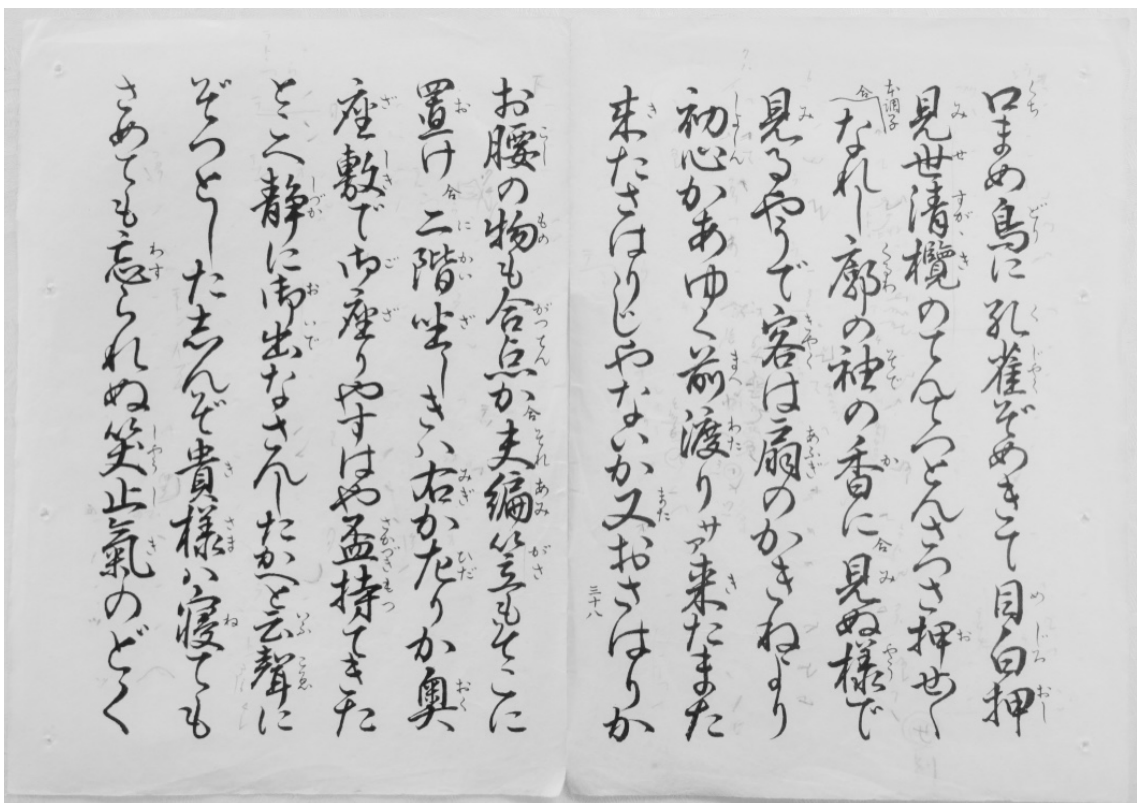 口まめ鳥に孔雀ぞめきて目白押
見世清欖のてんてつとんさつさ押せ〳〵
本調子 合 なれし廓の袖の香に 合 見ぬ様で
見るやうで客は扇のかきねより
初心かあゆく前渡り サア来たまた
来たさはりじやないか又おさはりか
三十八
お腰の物も合点か 合 夫編笠もそこに
置け 合 二階坐しきハ右か左りか奥
座敷で御座りやすはや盃持てきた
とこへ静に御出なさんしたかへと云聲に
ぞつとした志んぞ貴様ハ寝ても
さめても忘られぬ笑止氣のどく